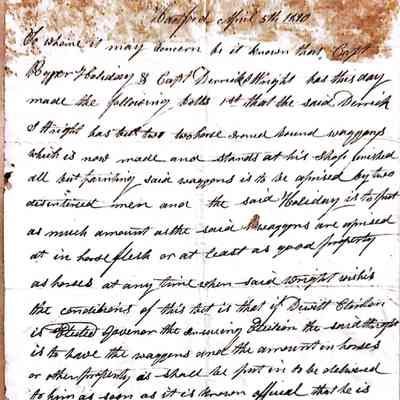 Hanford April 5th 1820
To whome it may concern be it known that Capt
Roger Holiday & Capt Derrick Wright has this day
made the following betts 1st that the said Derrick
S Wright has bett two two horse Ironed bound waggons
which is now made and stands at his Shop finished
all but painting said waggons is to be aprised by two
desintrised men and the said Holiday is to put
as much amount as the said waggons are aprised
at in horse flesh or at least as good property
as horses at any time when said Wright wishes
the conditions of this bet is that if Dewitt Clinton
is Elected Govenor the ensueing Election the said Wright
is to have the waggons and the amount in horses
or other property as shall be put in to be delivered
to him as soon as it is known official that he is